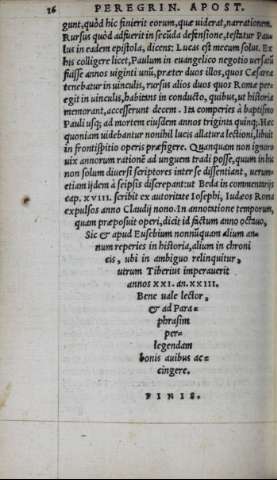 16 PEREGRIN. APOST.
gunt, quòd hic finierit eorum, quæ uiderat, narrationem.
Rursus quòd adfuerit in secūda defensione, testatur Pau-
lus in eadem epistola, dicens: Lucas est mecum solus. Ex
his colligere licet, Paulum in euangelico negotio uersatū
fuisse annos uiginti unū, præter duos illos, quos Cæsareæ
tenebatur in uinculis, rursus alios duos quos Romæ per-
egit in uinculis, habitans in conducto, quibus, ut historiæ
memorant, accesserunt decem. Ita comperies à baptismo
Pauli usq; ad mortem eiusdem annos triginta quinq;. Hæc
quoniam uidebantur nonnihil lucis allatura lectioni, libuit
in frontispitio operis præfigere. Quanquam non ignoro
uix annorum rationē ad unguem tradi posse, quum in hac
non solum diuersi scriptores inter se dissentiant, uerum-
etiam ijdem à seipsis discrepant: ut Beda in commentarijs
cap. XVIII. scribit ex autoritate Iosephi, Iudæos Roma
expulsos anno Claudij nono. In annotatione temporum,
quam præposuit operi, dicit id factum anno octauo.
Sic & apud Eusebium nonnunquam alium an-
num reperies in historia, alium in chroni
cis, ubi in ambiguo relinquitur,
utrum Tiberius imperauerit
annos XXI. an. XXIII.
Bene uale lector,
& ad Para-
phrasim
per-
legendam
bonis auibus ac-
cingere.
FINIS.